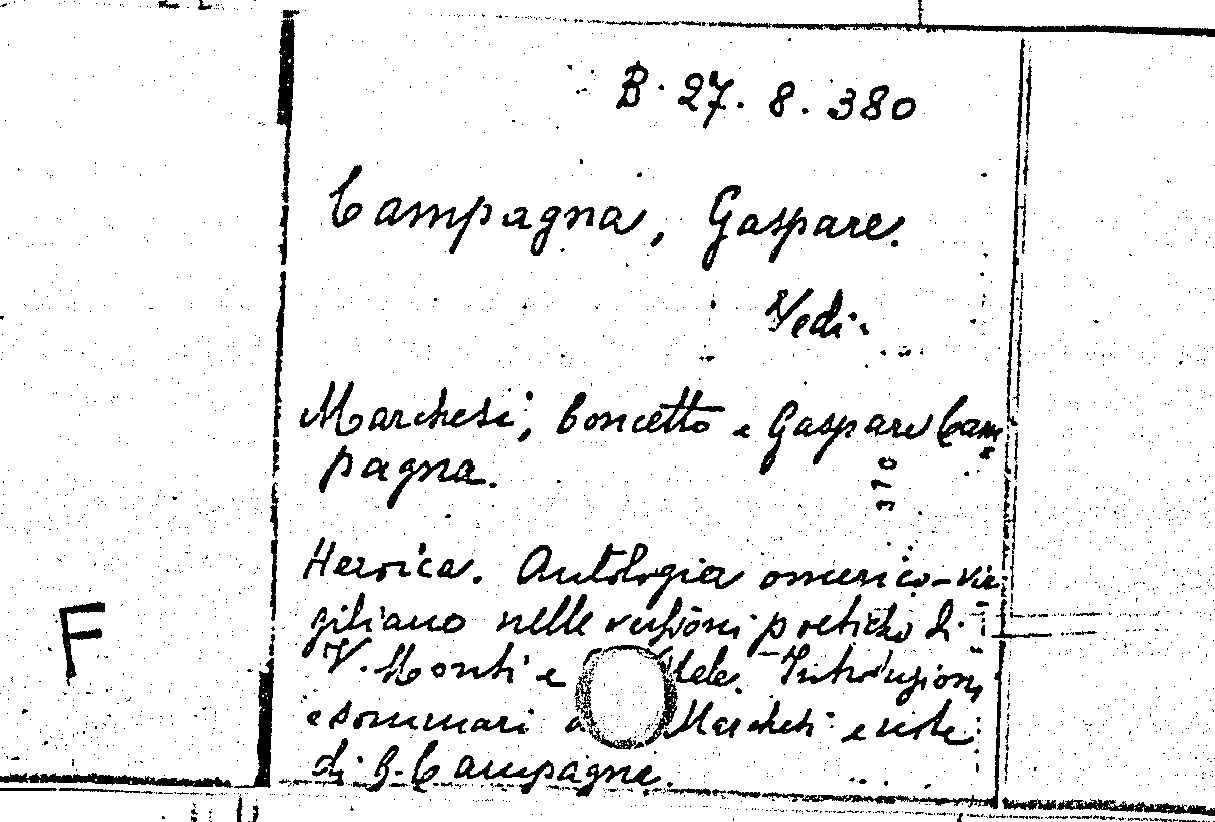 B. 27. 8. 380
Campagna, Gaspare.
Vedi.
Marchesi, Concetto e Gaspare Cam
pagna.
370
Heroica. Antologia omerico-vir
giliana nelle versioni poetiche di
V. Monti e
Introduzioni
e sommari Marchesi e note
di G. Campagna.
F